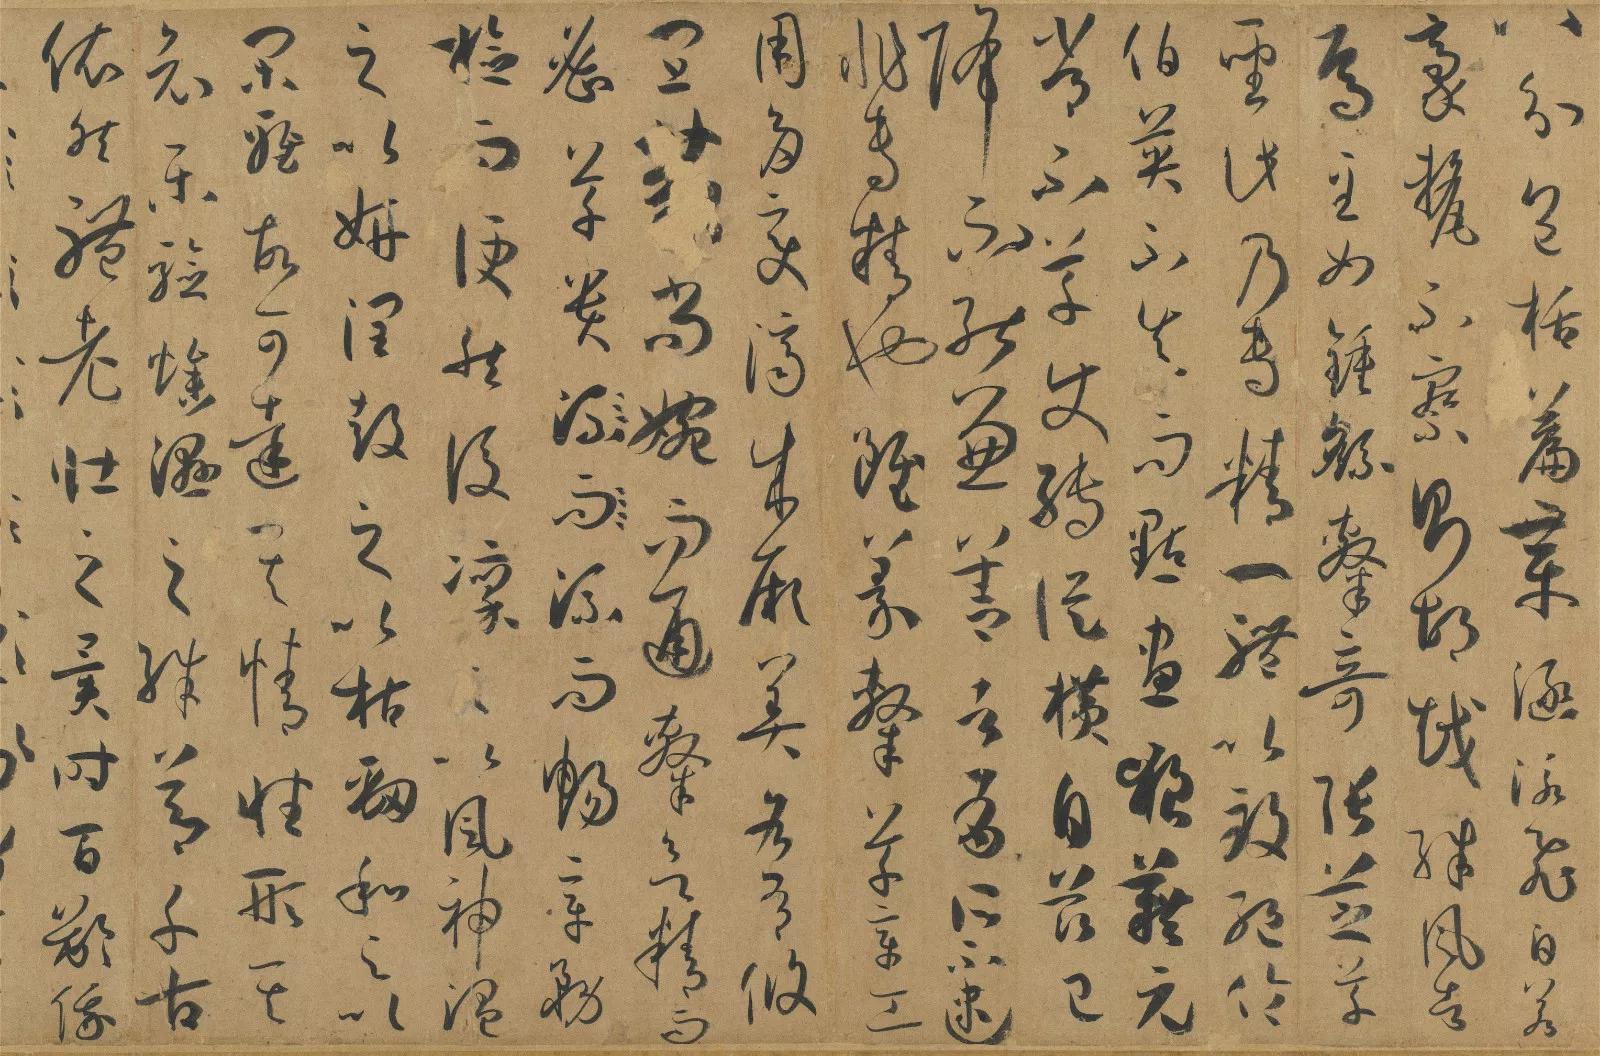 八分包括篇章涵泳飛白若
豪釐不察則胡越殊風者
焉至如鍾繇隸奇張芝草
聖此乃專精一體以致絕倫
伯英不真而點畫狼藉元
常不草使轉縱橫自茲已
降不能兼善者有所不逮
非專精也雖篆隸草章工
用多變濟成厥美各有攸
宜篆尚婉而通隸欲精而
密草貴流而流而暢章務
檢而便然後凜之以風神溫
之以妍潤鼓之以枯勁和之以
閑雅故可達其情性形其
哀樂驗燥濕之殊節千古
依然體老壯之異時百齡俄